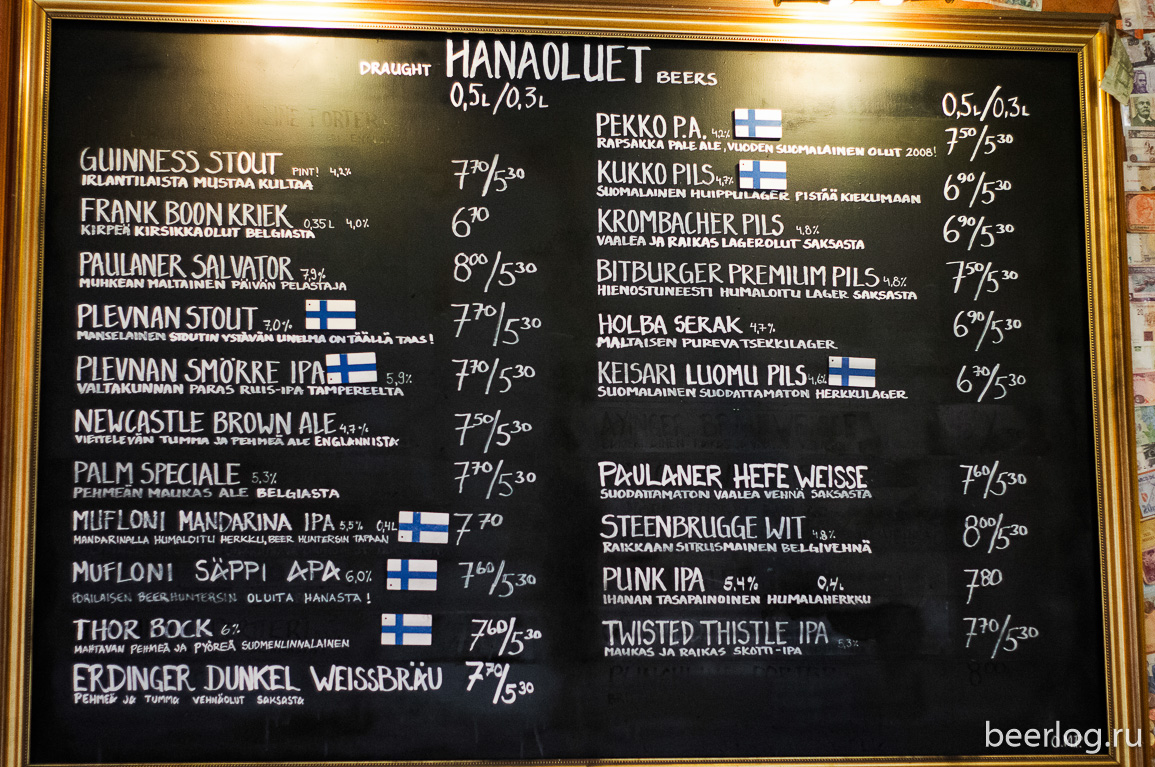 DRAUGHT HANAOLUET BEERS
0,5L/0,3L
GUINNESS STOUT PINT! 4,2% 7⁷⁰/5³⁰
IRLANTILAISTA MUSTAA KULTAA
FRANK BOON KRIEK 0,35L 4,0% 6⁷⁰
KIRPEÄ KIRSIKKAOLUT BELGIASTA
PAULANER SALVATOR 7,9% 8⁰⁰/5³⁰
MUHKEAN MALTAINEN PÄIVÄN PELASTAJA
PLEVNAN STOUT 7,0% 7⁷⁰/5³⁰
MANSELAINEN STOUTIN YSTÄVÄN UNELMA ON TÄÄLLÄ TAAS!
PLEVNAN SMÖRRE IPA 5,9% 7⁷⁰/5³⁰
VALTAKUNNAN PARAS RUIS-IPA TAMPEREELTA
NEWCASTLE BROWN ALE 4,7% 7⁵⁰/5³⁰
VIETTELEVÄN TUMMA JA PEHMEÄ ALE ENGLANNISTA
PALM SPECIALE 5,3% 7⁷⁰/5³⁰
PEHMEÄN MAUKAS ALE BELGIASTA
MUFLONI MANDARINA IPA 5,5% 0,4L 7⁷⁰
MANDARINALLA HUMALOITU HERKKU, BEER HUNTERSIN TAPAAN!
MUFLONI SÄPPI APA 6,0% 7⁶⁰/5³⁰
PORILAISEN BEERHUNTERSIN OLUITA HANASTA!
THOR BOCK 6% 7⁶⁰/5³⁰
MAHTAVAN PEHMEÄ JA PYÖREÄ SUOMENLINNALAINEN
ERDINGER DUNKEL WEISSBRÄU 7⁷⁰/5³⁰
PEHMEÄ JA TUMMA VEHNÄOLUT SAKSASTA
0,5L/0,3L
PEKKO P.A. 4,2% 7⁵⁰/5³⁰
RAPSAKKA PALE ALE, VUODEN SUOMALAINEN OLUT 2008!
KUKKO PILS 4,7% 6⁹⁰/5³⁰
SUOMALAINEN HUIPPULAGER PISTÄÄ KIEKUMAAN
KROMBACHER PILS 4,8% 6⁹⁰/5³⁰
VAALEA JA RAIKAS LAGEROLUT SAKSASTA
BITBURGER PREMIUM PILS 4,8% 7⁵⁰/5³⁰
HIENOSTUNEESTI HUMALOITU LAGER SAKSASTA
HOLBA SERAK 4,7% 6⁹⁰/5³⁰
MALTAISEN PUREVA TSEKKILAGER
KEISARI LUOMU PILS 4,6% 6⁷⁰/5³⁰
SUOMALAINEN SUODATTAMATON HERKKULAGER
PAULANER HEFE WEISSE 7⁶⁰/5³⁰
SUODATTAMATON VAALEA VEHNÄ SAKSASTA
STEENBRUGGE WIT 4,8% 8⁰⁰/5³⁰
RAIKKAAN SITRUSMAINEN BELGIVEHNÄ
PUNK IPA 5,4% 0,4L 7⁸⁰
IHANAN TASAPAINOINEN HUMALAHERKKU
TWISTED THISTLE IPA 5,3% 7⁷⁰/5³⁰
MAUKAS JA RAIKAS SKOTTI-IPA
beerlog.ru